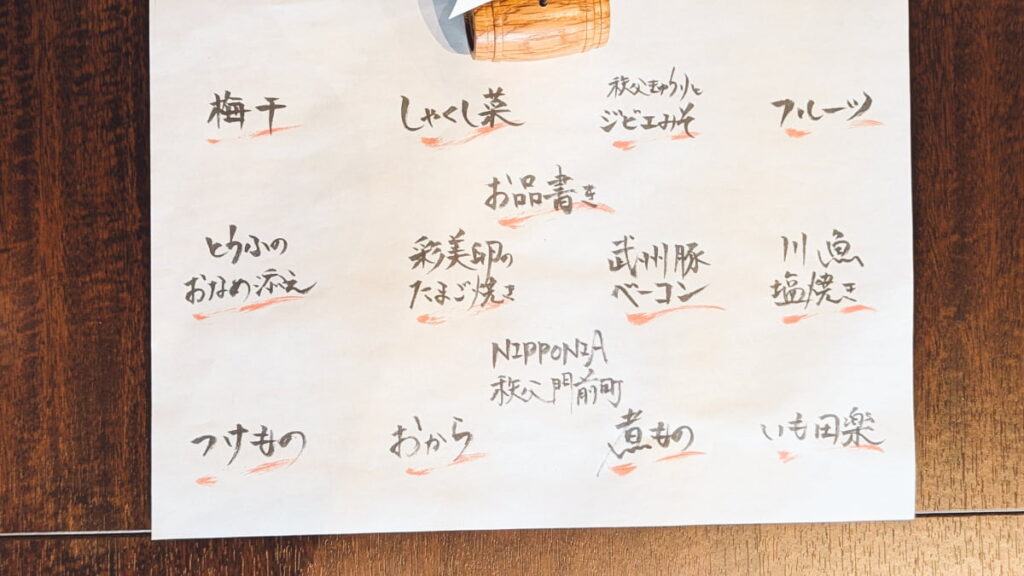 梅干
しゃくし菜
秩父きゅうりと
ジビエみそ
フルーツ
お品書き
とうふの
おなめ添え
彩美卵の
たまご焼き
武州豚
ベーコン
川魚
塩焼き
NIPPONIA
秩父門前町
つけもの
おから
煮もの
いも田楽